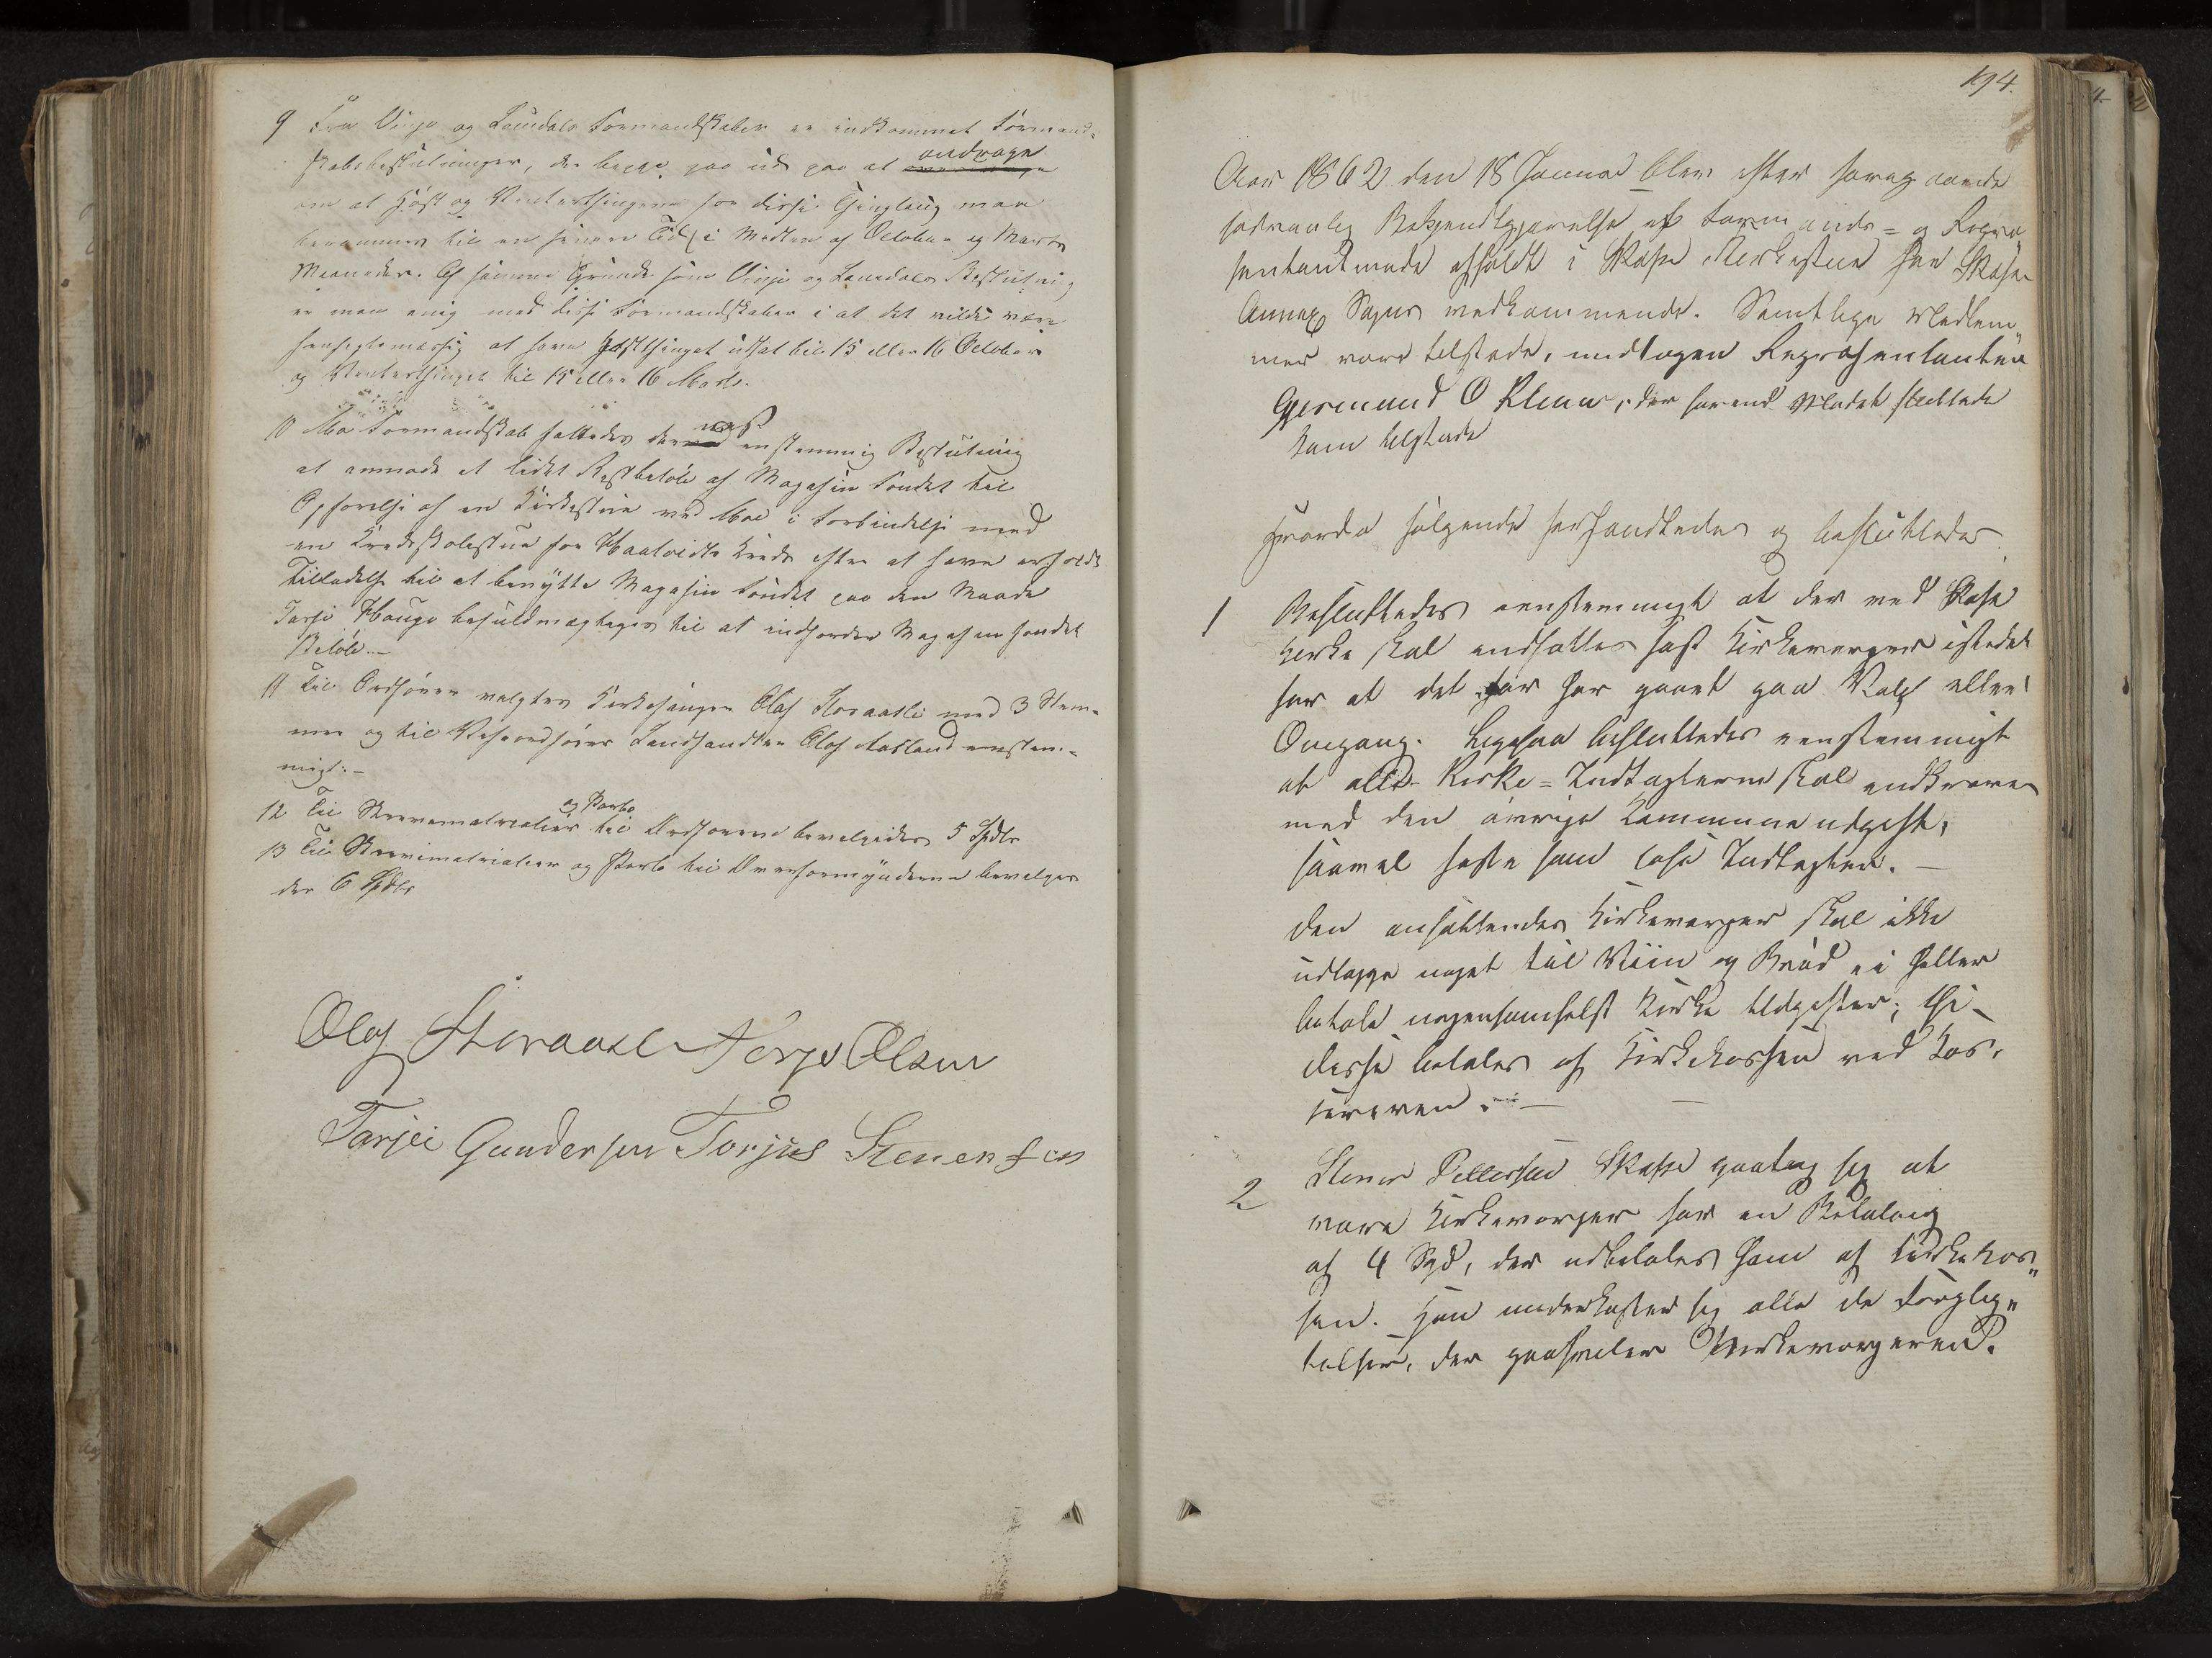 9 Fra Vinje og Laurdals Formandskaber er indkommet Formand-
skabsbeslutninger, der begge gaa ud paa at andrage
om at Høst og Vinterthingene for disse Thinglaug maa
berammes til en senere Tid i Midten af October og Marts
Maaneder. Af samme Grunde som Vinje og Laurdals Beslutning
er man enig med disse Formandskaber i at det vilde være
hensigtsmæssig at have Høstthinget udsat til 15 eller 16 October
og Vinterthinget til 15 eller 16 Marts.
10 Mo Formandskab fattedes den enstemmig Beslutning
at anmode et lidet Restbeløb af Magasin Fondet til
Opførelse af en Kirkestue ved Moe i Forbindelse med
en Kredsskolestue for Haatvedts Kreds efter at have erholdt
Tilladelse til at benytte Magasin Fondet paa den Maade
Tarje Hauge befuldmægtiges til at indfordre Magasin fondet
Beløb.-
11 Til Ordfører valgtes Kirkesanger Olaf Storaasli med 3 Stem-
mer og til Viseordfører Landhandler Olaf Aasland enstem-
migt.-
og Porto
12 Til Skrivematrialier til Ordføreren bevilgedes 5 Spdlr
13 Til Skrivimatrialier og Porto til Overformynderne bevilges
der 6 Spdlr
Olaf Storaasli Tørge Olsen
Tarjei Gundersen Torjus Stenersen
194.
Aar 1862 den 18 Januar blev efter foregaaende
sedvanlig Bekjendtgjørelse et Formands= og Repræ
sentantmøde afholdt i Skafse Kirkestue for Skafse
Annex Sogns vedkommende. Samtlige Medlem„
mer vare tilstede, undtagen Repræsentanten
Germund O Kleiva, der førend Mødet sluttede
kom tilstede
Hvorda følgende forhandledes og besluttedes
1 Besluttedes eenstemmigt at der ved Skafse
Kirke skal ansættes fast Kirkeverger istedet
for at det før har gaaet paa Valg eller
Omgang. Ligesaa besluttedes eenstemmigt
at alle Kirke=Indtægterne skal indkræves
med den øvrige Kommune udgift,
saavel faste som løse Indtægter. —
den ansættendes Kirkeverger skal ikke
udlægge noget til Viin og Brød ei heller
betale nogensomhelst Kirke Udgifter; thi
disse betales af Kirkekassen ved Kas-
sereren. —
2 Stener Pettersen Skafse paatog sig at
være Kirkeverger for en Betaling
af 4 Spd, der udbetales ham af Kirkekas„
sen. Han underkaster sig alle de Forplig„
telser, der paahviler Kirkevergeren.